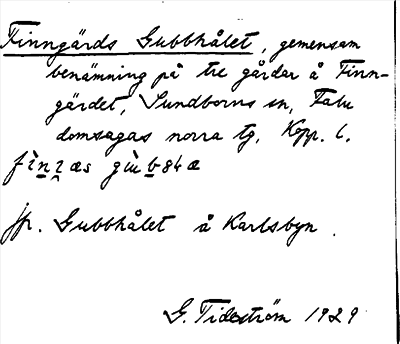 Finngärds Gubbhålet, gemensam
benämning på tre gårdar å Finn-
gärdet, Sundborns sn, Falu
domsagas norra tg, Kopp. l.
jfr. Gubbhålet å Karlsbyn.
G. Tideström 1929